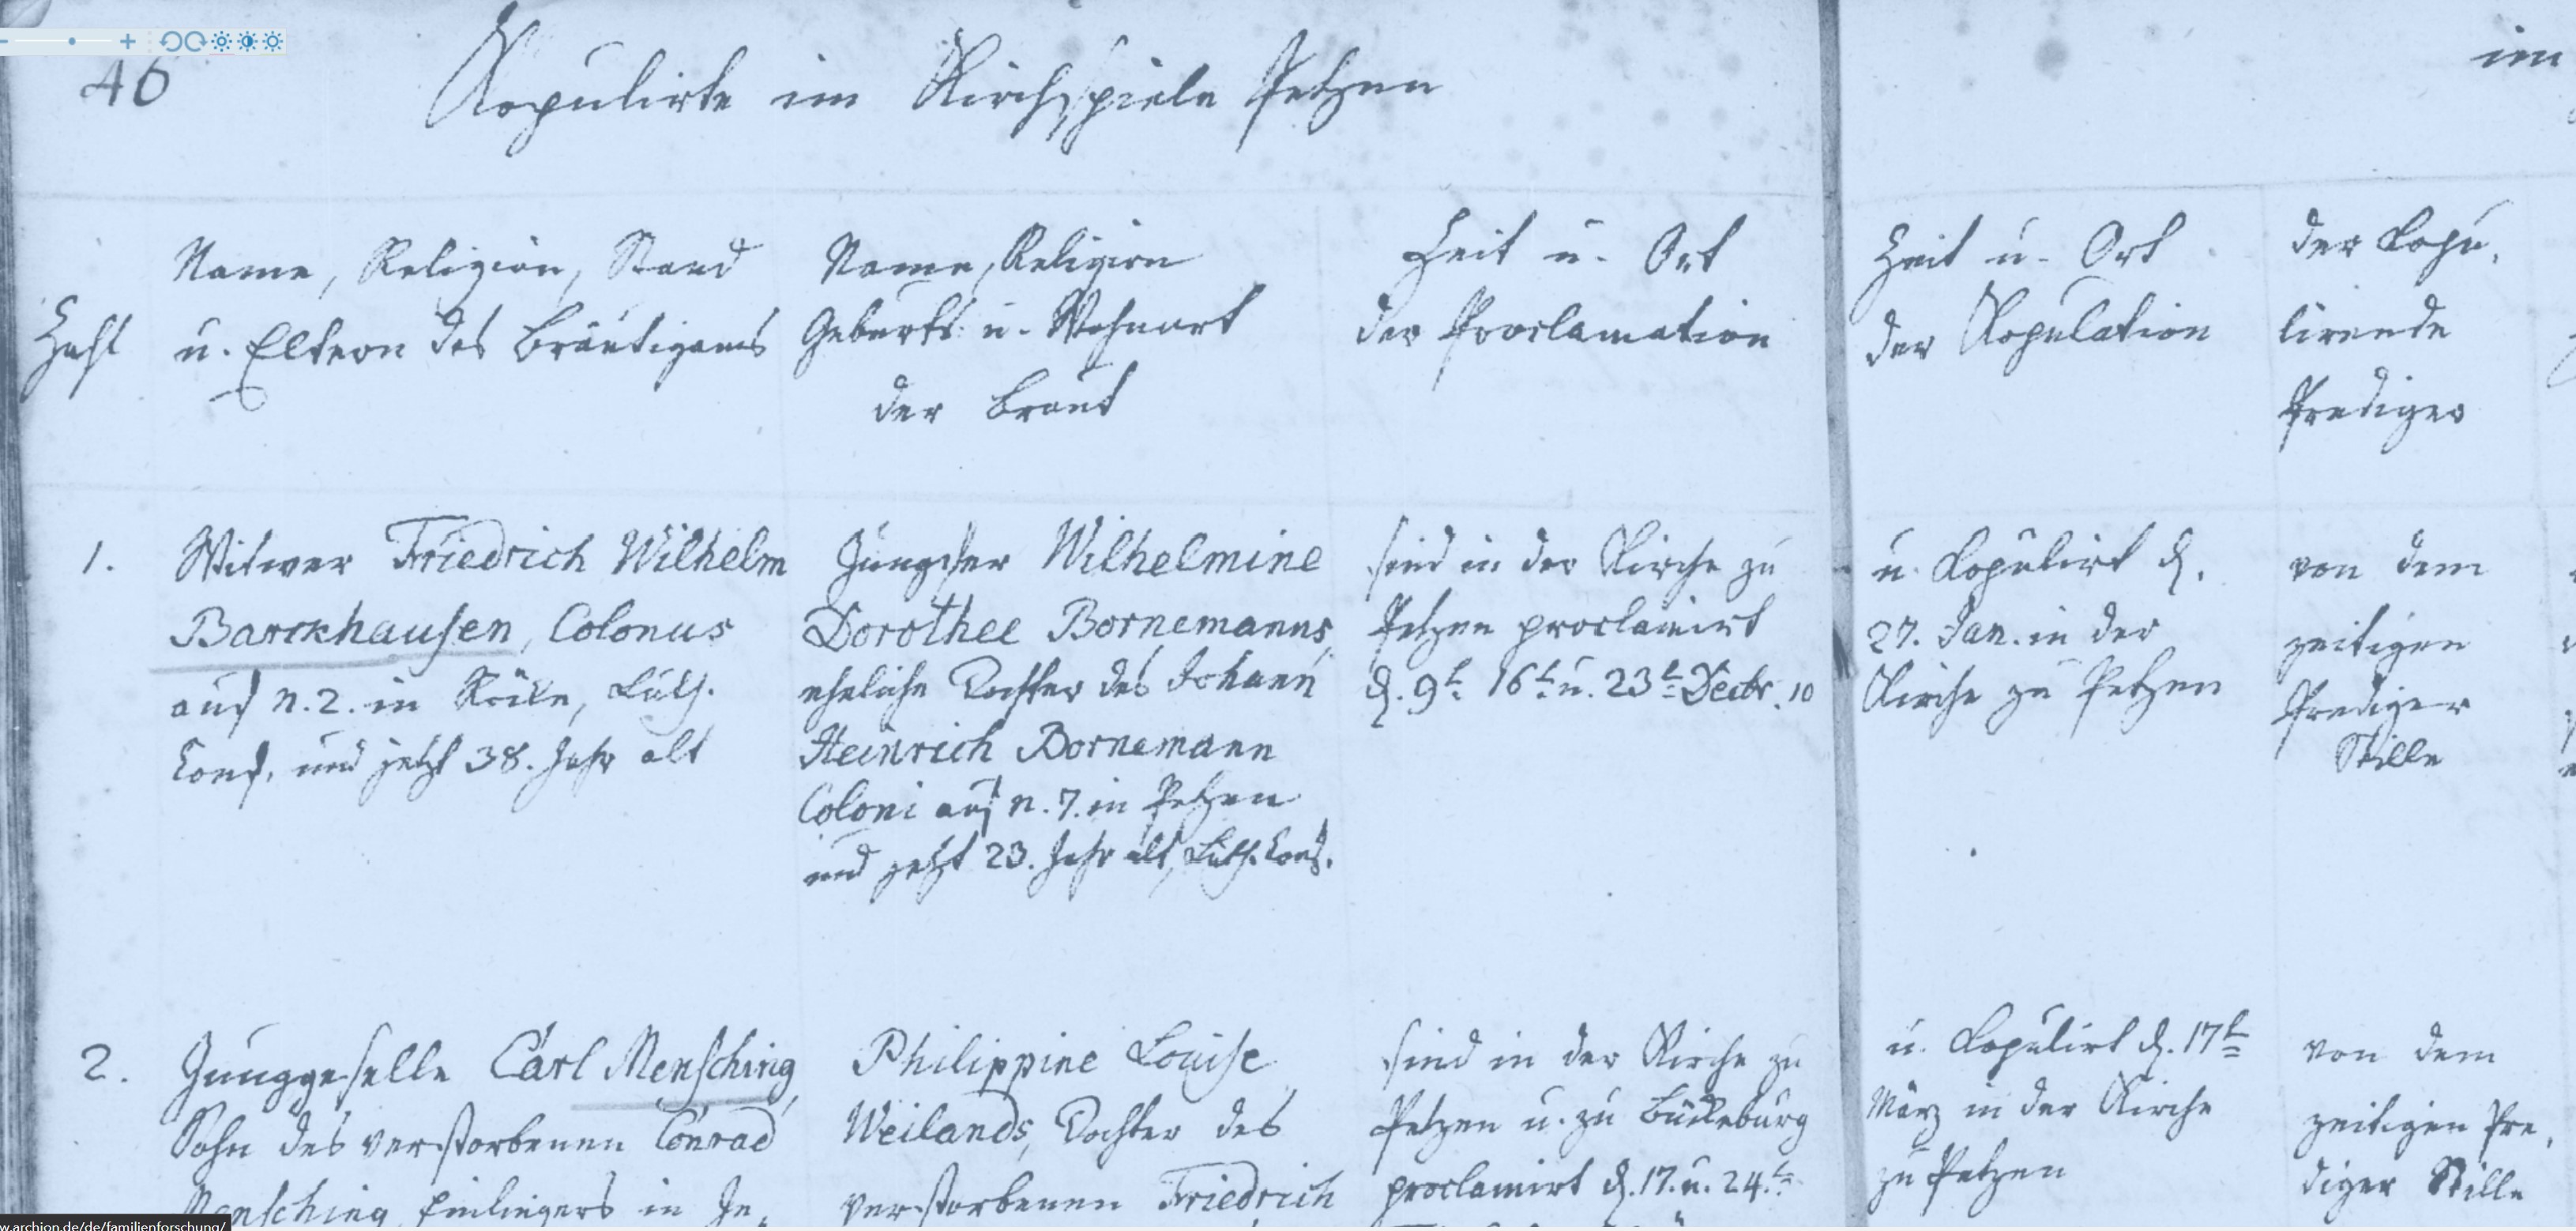 46
Kopulirte im Kirchspiele Petzen
im
Zahl
Name, Religion, Stand
u. Eltern des Bräutigams
Name, Religion
Geburts- u. Wohnort
der Braut
Zeit u. Ort
der Proclamation
Zeit u. Ort
der Kopulation
der Copu-
lirende
Prediger
1.
Witwer Friedrich Wilhelm
Barckhausen, Colonus
auf N. 2. in Röcke, Luth.
Conf. und jetzt 38. Jahr alt
Jungfer Wilhelmine
Dorothee Bornemanns,
eheliche Tochter des Johann
Heinrich Bornemann
Coloni auf N. 7. in Petzen
und jetzt 23. Jahr alt, Luth. Conf.
sind in der Kirche zu
Petzen proclamirt
d. 9t. 16t. u. 23t. Decbr. 10
u. Copulirt d.
27. Jan. in der
Kirche zu Petzen
von dem
zeitigen
Prediger
Stille
2.
Junggeselle Carl Mensching,
Sohn des verstorbenen Conrad
Mensching, Einliegers in Je-
Philippine Louise
Weilands, Tochter des
verstorbenen Friedrich
sind in der Kirche zu
Petzen u. zu Bückeburg
proclamirt d. 17. u. 24t.
u. Copulirt d. 17t
März in der Kirche
zu Petzen
von dem
zeitigen Pre-
diger Stille
w.archion.de/de/familienforschung/